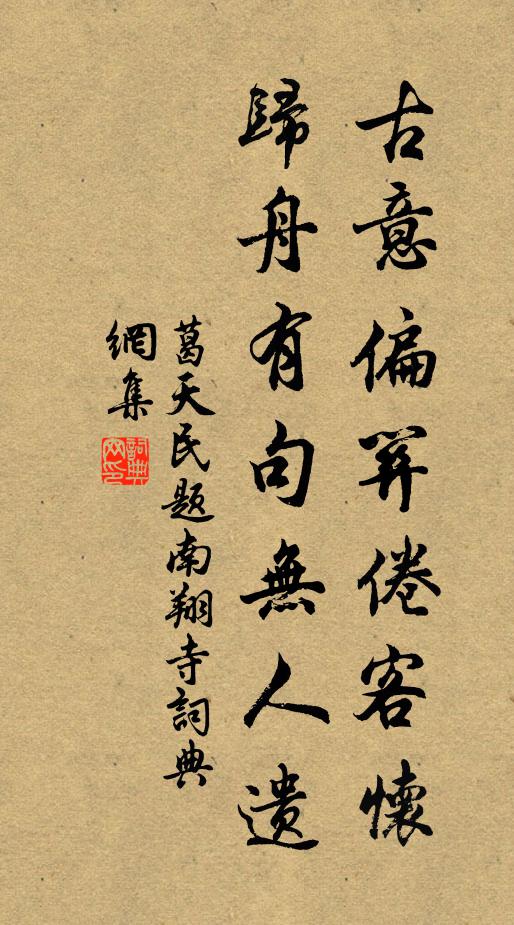 古意偏開倦客懷
歸舟有句無人遺
葛天民題南翔寺詞典
網集
詞典
网印